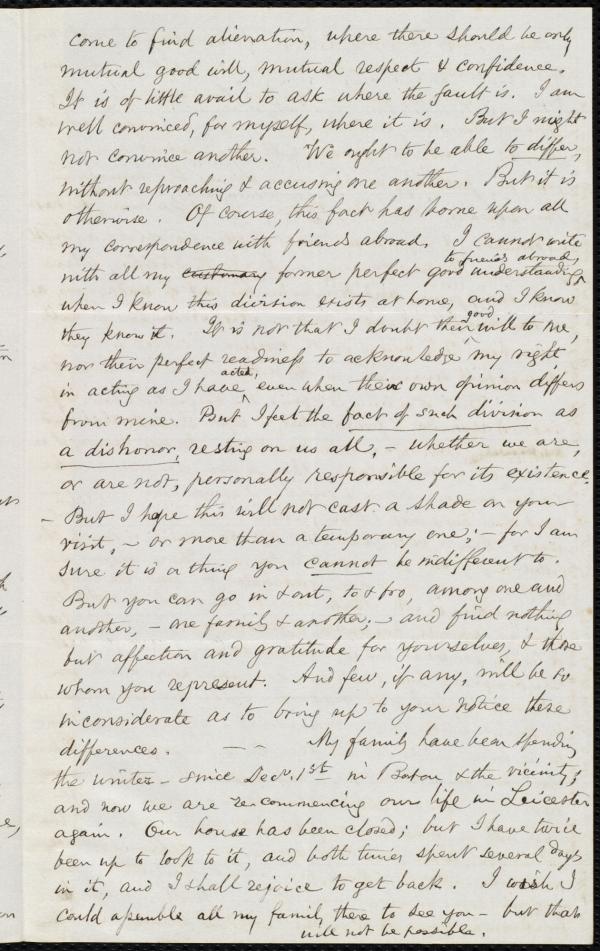 come to find alienation, where there should be only
mutual good will, mutual respect & confidence.
It is of little avail to ask where the fault is. I am
well convinced, for myself, where it is. But I might
not convince another. We ought to be able to differ,
without reproaching & accusing one another. But it is
otherwise. Of course, this fact has borne upon all
my correspondence with friends abroad. I cannot write
to friends abroad,
with all my customary former perfect good understanding
when I know this division exists at home, and I know
they know it. It is not that I doubt their good will to me,
nor their perfect readiness to acknowledge my right
in acting as I have acted, even when their own opinion differs
from mine. But I feel the fact of such division as
a dishonor, resting on us all, – whether we are,
or are not, personally responsible for its existence.
– But I hope this will not cast a shade on your
visit, – or more than a temporary one; – for I am
sure it is a thing you cannot be indifferent to.
But you can go in & out, to & fro, among one and
another, – one family & another; – and find nothing
but affection and gratitude for yourselves, & those
whom you represent. And few, if any, will be so
inconsiderate as to bring up to your notice these
differences. – – My family have been spending
the winter – since Decr. 1st in Boston & the vicinity;
and now we are re-commencing our life in Leicester
again. Our house has been closed; but I have twice
been up to look to it, and both times spent several days
in it, and I shall rejoice to get back. I wish I
could assemble all my family there to see you – but that
will not be possible.